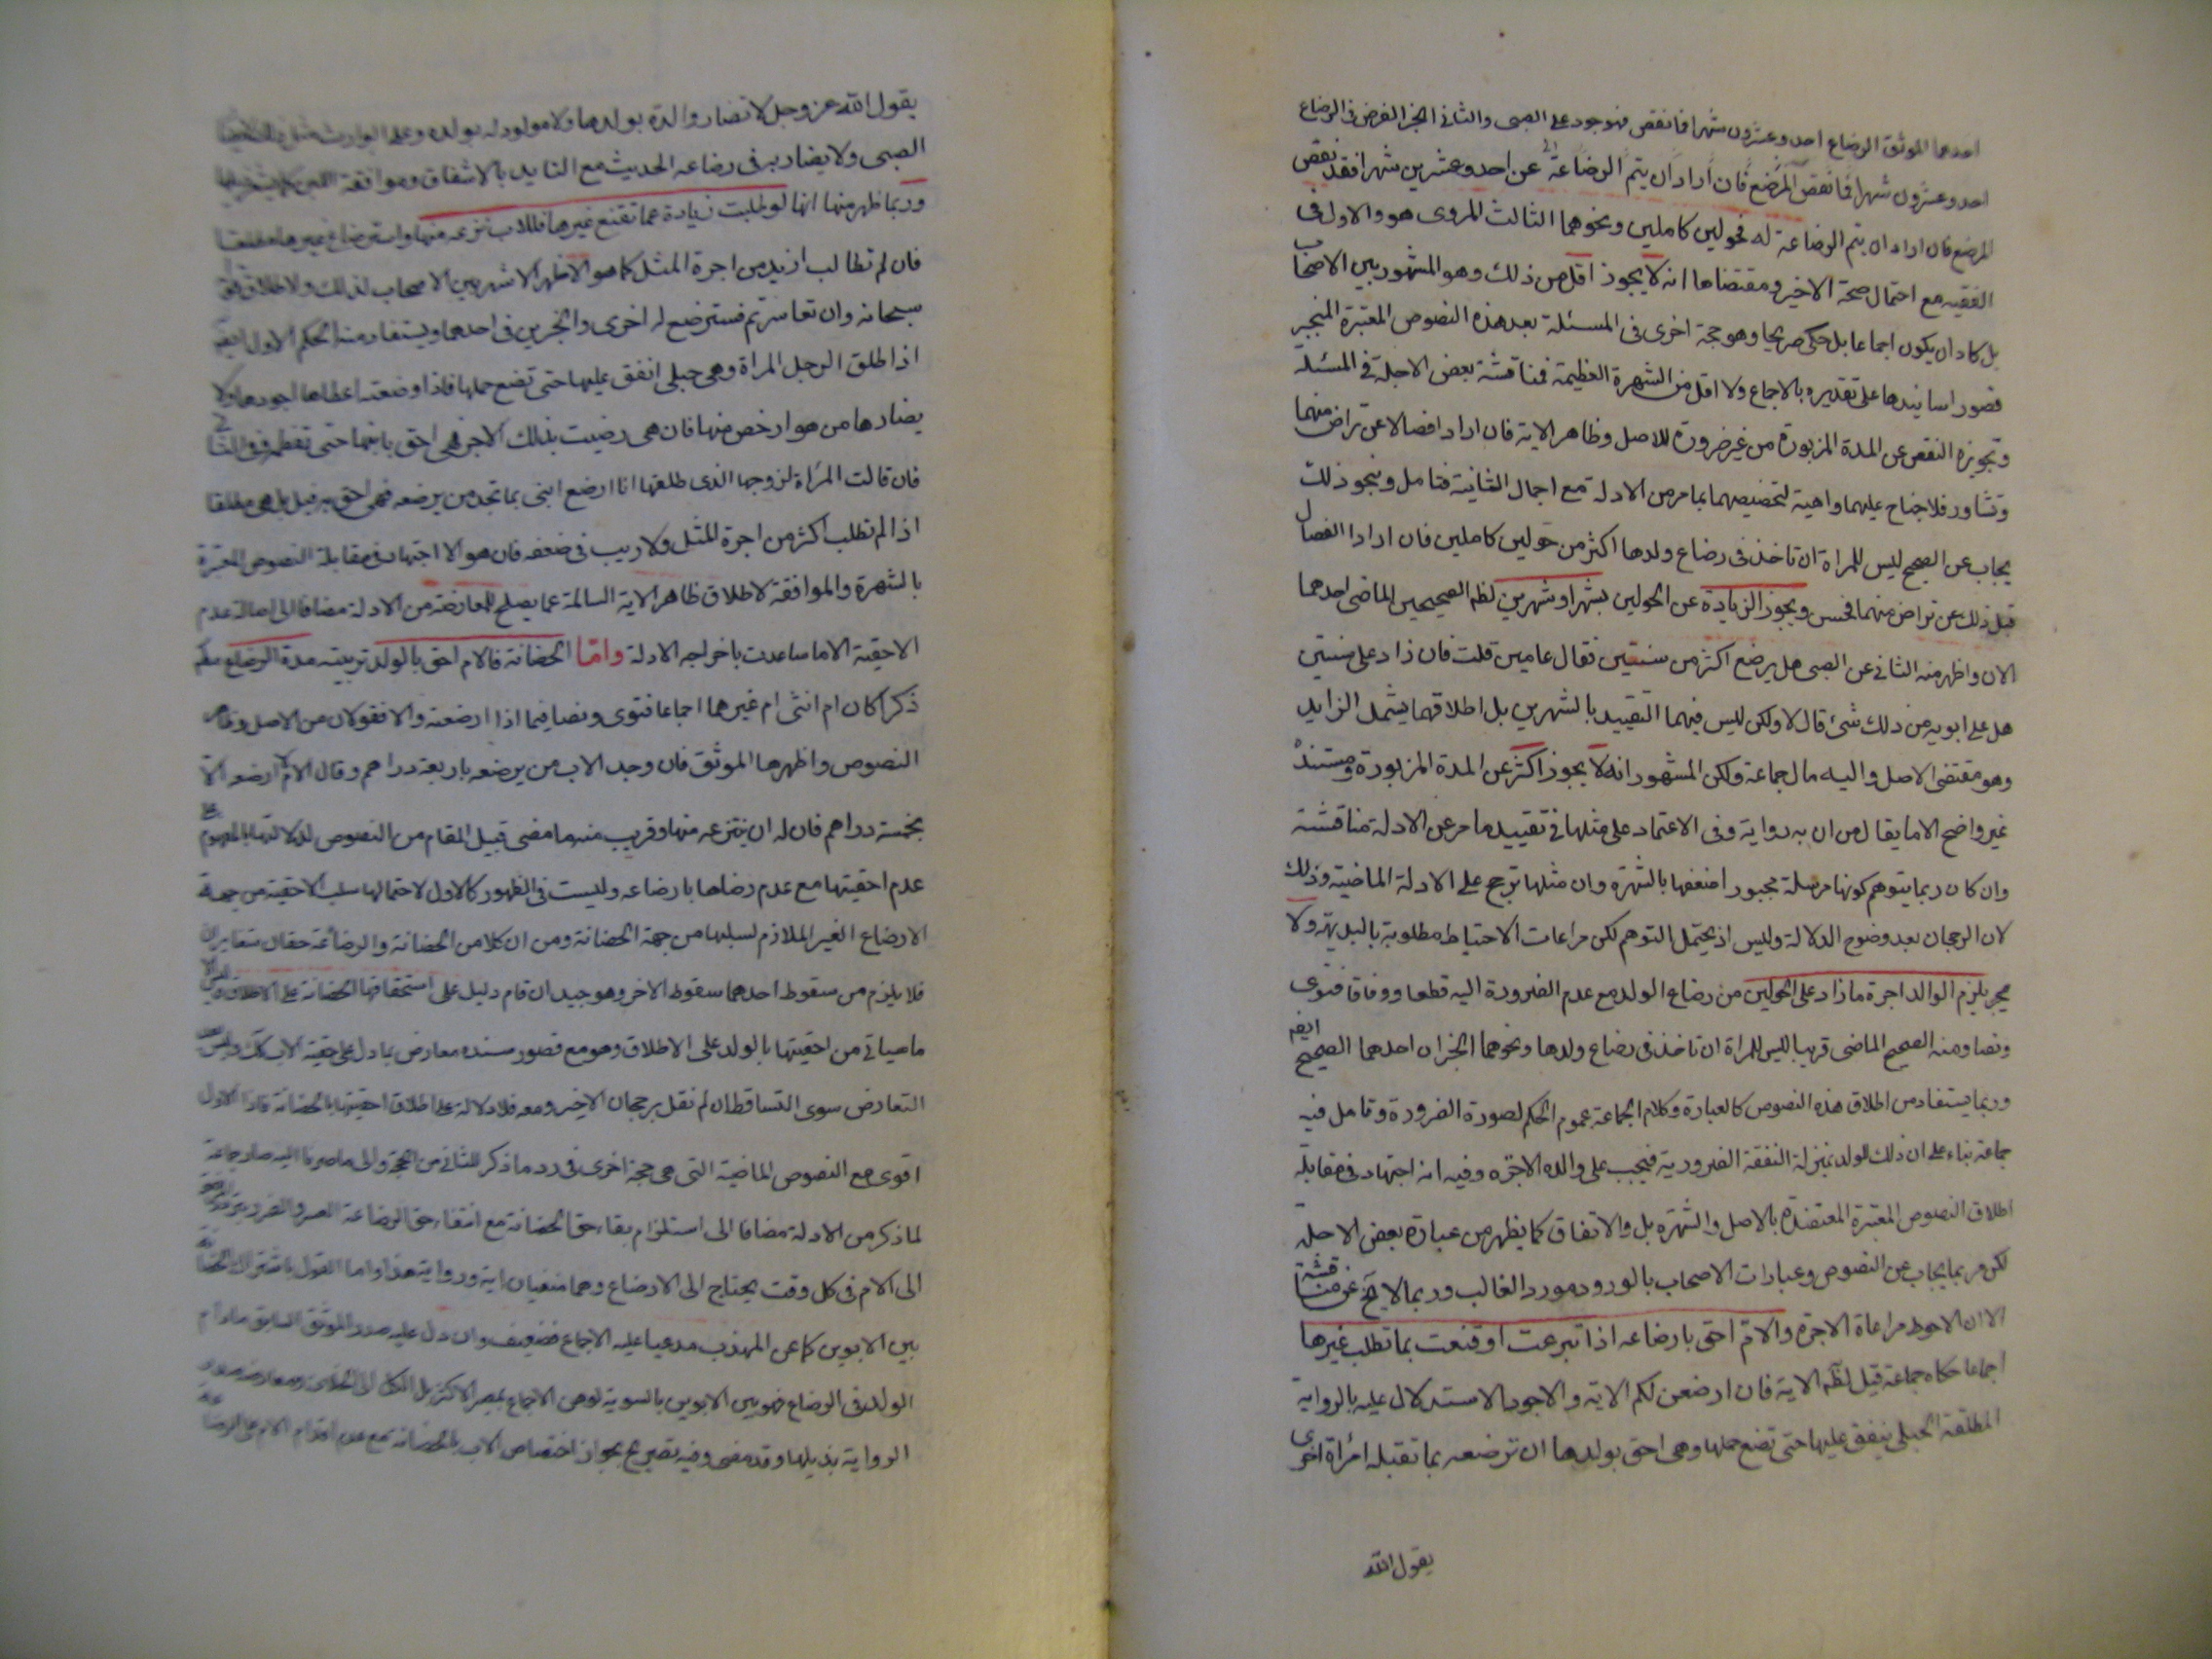 احدهما الموثق الرضاع احد وعشرون شهرا فما نقص فهو جور على الصبي والثاني الخبر الفرض في الرضاع
احد وعشرون شهرا فما نقص المرضع فان اراد ان يتم الرضاعة عن احد وعشرين شهرا فقد نقص
المرضع فان اراد ان يتم الرضاعة له فحولين كاملين ونحوهما الثالث المروى هو والاول في
الفقيه مع احتمال صحة الاخير ومقتضاها انه لا يجوز اقل من ذلك وهو المشهور بين الاصحاب
بل كاد ان يكون اجماعا بل حكى صريحا وهو حجة اخرى في المسئلة بعد هذه النصوص المعتبرة المنجبر
قصور اسانيدها على تقديره بالاجماع ولا اقل من الشهرة العظيمة فمناقشة بعض الاجلة في المسئلة
وتجويزه النقص عن المدة المزبورة من غير ضرورة للاصل وظاهر الاية فان ارادا فصالا عن تراض منهما
وتشاور فلا جناح عليهما واهية لتخصيصهما بما مر من الادلة مع اجمال الثانية فتامل وبنحو ذلك
يجاب عن الصحيح ليس للمراة ان تاخذ في رضاع ولدها اكثر من حولين كاملين فان ارادا الفصال
قبل ذلك عن تراض منهما فحسن ويجوز الزيادة عن الحولين بشهر او شهرين لظ الصحيحين الماضى احدهما
الان واظهر منه الثاني عن الصبى هل يرضع اكثر من سنتين فقال عامين قلت فان زاد على سنتين
هل على ابويه من ذلك شئ قال لا ولكن ليس فيهما التقييد بالشهرين بل اطلاقهما يشمل الزايد
وهو مقتضى الاصل واليه مال جماعة ولكن المشهور انه لا يجوز اكثر عن المدة المزبورة ومستنده
غير واضح الا ما يقال من ان به رواية وفي الاعتماد على مثلها في تقييد ما مر عن الادلة مناقشة
وان كان ربما يتوهم كونها مرسلة مجبور اضعفها بالشهرة وان مثلها ترجح على الادلة الماضية وذلك
لان الرجحان بعد وضوح الدلالة وليس اذ يحتمل التوهم لكن مراعات الاحتياط مطلوبة بالبديهة ولا
يلزم الوالد اجرة ما زاد على الحولين من رضاع الولد مع عدم الضرورة اليه قطعا ووفاقا فتوى
ونصا ومنه الصحيح الماضى قريبا ليس للمراة ان تاخذ في رضاع ولدها ونحوهما الخبران احدهما الصحيح ايضه
وربما يستفاد من اطلاق هذه النصوص كالعبارة وكلام الجماعة عموم الحكم لصورة الضرورة وتامل فيه
جماعة بناء على ان ذلك للولد بمنزلة النفقة الضرورية فيجب على والده الاجرة وفيه انه اجتهاد في مقابلة
اطلاق النصوص المعتبرة المعتضدة بالاصل والشهرة بل والاتفاق كما يظهر من عبارة بعض الاجلة
لكن ربما يجاب عن النصوص وعبارات الاصحاب بالورود مورد الغالب وربما لا يخ عن مناقشة
الا ان الاحوط مراعاة الاجرة والام احق بارضاعه اذا تبرعت او قنعت بما تطلب غيرها
اجماعا حكاه جماعة قيل لظ الاية فان ارضعن لكم الاية والاجود الاستدلال عليه بالرواية
المطلقة الحبلى ينفق عليها حتى تضع حملها وهى احق بولدها ان ترضعه بما تقبله امرأة اخرى
يقول الله
يقول الله عز وجل لا تضار والدة بولدها ولا مولود له بولده وعلى الوارث مثل ذلك
الصبى ولا يضار به في رضاعه الحديث مع التايد بالاشفاق وموافقة اللبن
وربما ظهر منها انها لو طلبت زيادة عما تقنع غيرها فللاب نزعه منها واسترضاع غيرها مطلقا
فان لم تطالب ازيد من اجرة المثل كما هو الاظهر الاشهر بين الاصحاب لذلك ولاطلاق قوله
سبحانه وان تعاسرتم فسترضع له اخرى والخبرين في احدهما ويستفاد منه الحكم الاول ايضه
اذا طلق الرجل المراة وهى حبلى انفق عليها حتى تضع حملها فاذا وضعته اعطاها اجرها ولا
يضارها من هو ارخص منها فان هى رضيت بذلك الاجر فهى احق بابنها حتى تفطمه وفي
فان قالت المراة لزوجها الذى طلقها انا ارضع ابنى بما تجد من يرضعه فهى احق به قيل بل هى مطلقا
اذا لم تطلب اكثر من اجرة المثل ولا ريب في ضعفه فان هو الا اجتهاد في مقابلة النصوص المعتبرة
بالشهرة والموافقة لاطلاق ظاهر الاية السالمة عما يصلح للمعارضة من الادلة مضافا الى اصالة عدم
الاحقية الا ما ساعدت باخراجه الادلة واما الحضانة فالام احق بالولد تربيته مدة الرضاع مطلقا
ذكرا كان ام انثى ام غيرهما اجماعا فتوى ونصا فيما اذا ارضعته والا فقولان من الاصل وظاهر
النصوص واظهرها الموثق فان وجد الاب من يرضعه باربعة دراهم وقال الام لا ارضعه الا
بخمسة دراهم فان له ان ينتزعه منها وقريب منه ما مضى قبيل المقام من النصوص لدلالتها بالمفهوم
عدم احقيتها مع عدم رضاها بارضاعه وليست في الظهور كالاول لاحتمالها سلب الاحقية من جهة
الارضاع الغير الملازم لسلبها من جهة الحضانة ومن ان كلا من الحضانة والرضاعة حقان متغايران
فلا يلزم من سقوط احدهما سقوط الاخر وهو جيد ان قام دليل على استحقاقها الحضانة على الاطلاق وليس الا
ما سياتي من احقيتها بالولد على الاطلاق وهو مع قصور سنده معارض بما دل على احقية الاب كك وليس بعد
التعارض سوى التساقط ان لم نقل برجحان الاخير ومعه فلا دلالة على اطلاق احقيتها بالحضانة فاذا الاول
اقوى مع النصوص الماضية التى هى حجة اخرى في رد ما ذكر للثاني من الحجة والى ما صرنا اليه صار جماعة
لما ذكر من الادلة مضافا الى استلزام بقاء حق الحضانة مع انتفاء حق الرضاعة العسر والضرر
الى الام في كل وقت يحتاج الى الارضاع وهما منفيان اية ورواية هذا واما القول باشتراك الحضانة
بين الابوين كما عن المهذب مدعيا عليه الاجماع فضعيف وان دل عليه صدر الموثق السابق ما دام
الولد في الرضاع فهو بين الابوين بالسوية لوهن الاجماع بمصير الاكثر بل الكل الى الخلاف ومعارضة صدر
الرواية بذيلها وقد مضى وفيه تصريح بجواز اختصاص الاب بالحضانة مع عدم اقدام الام على الرضاعة